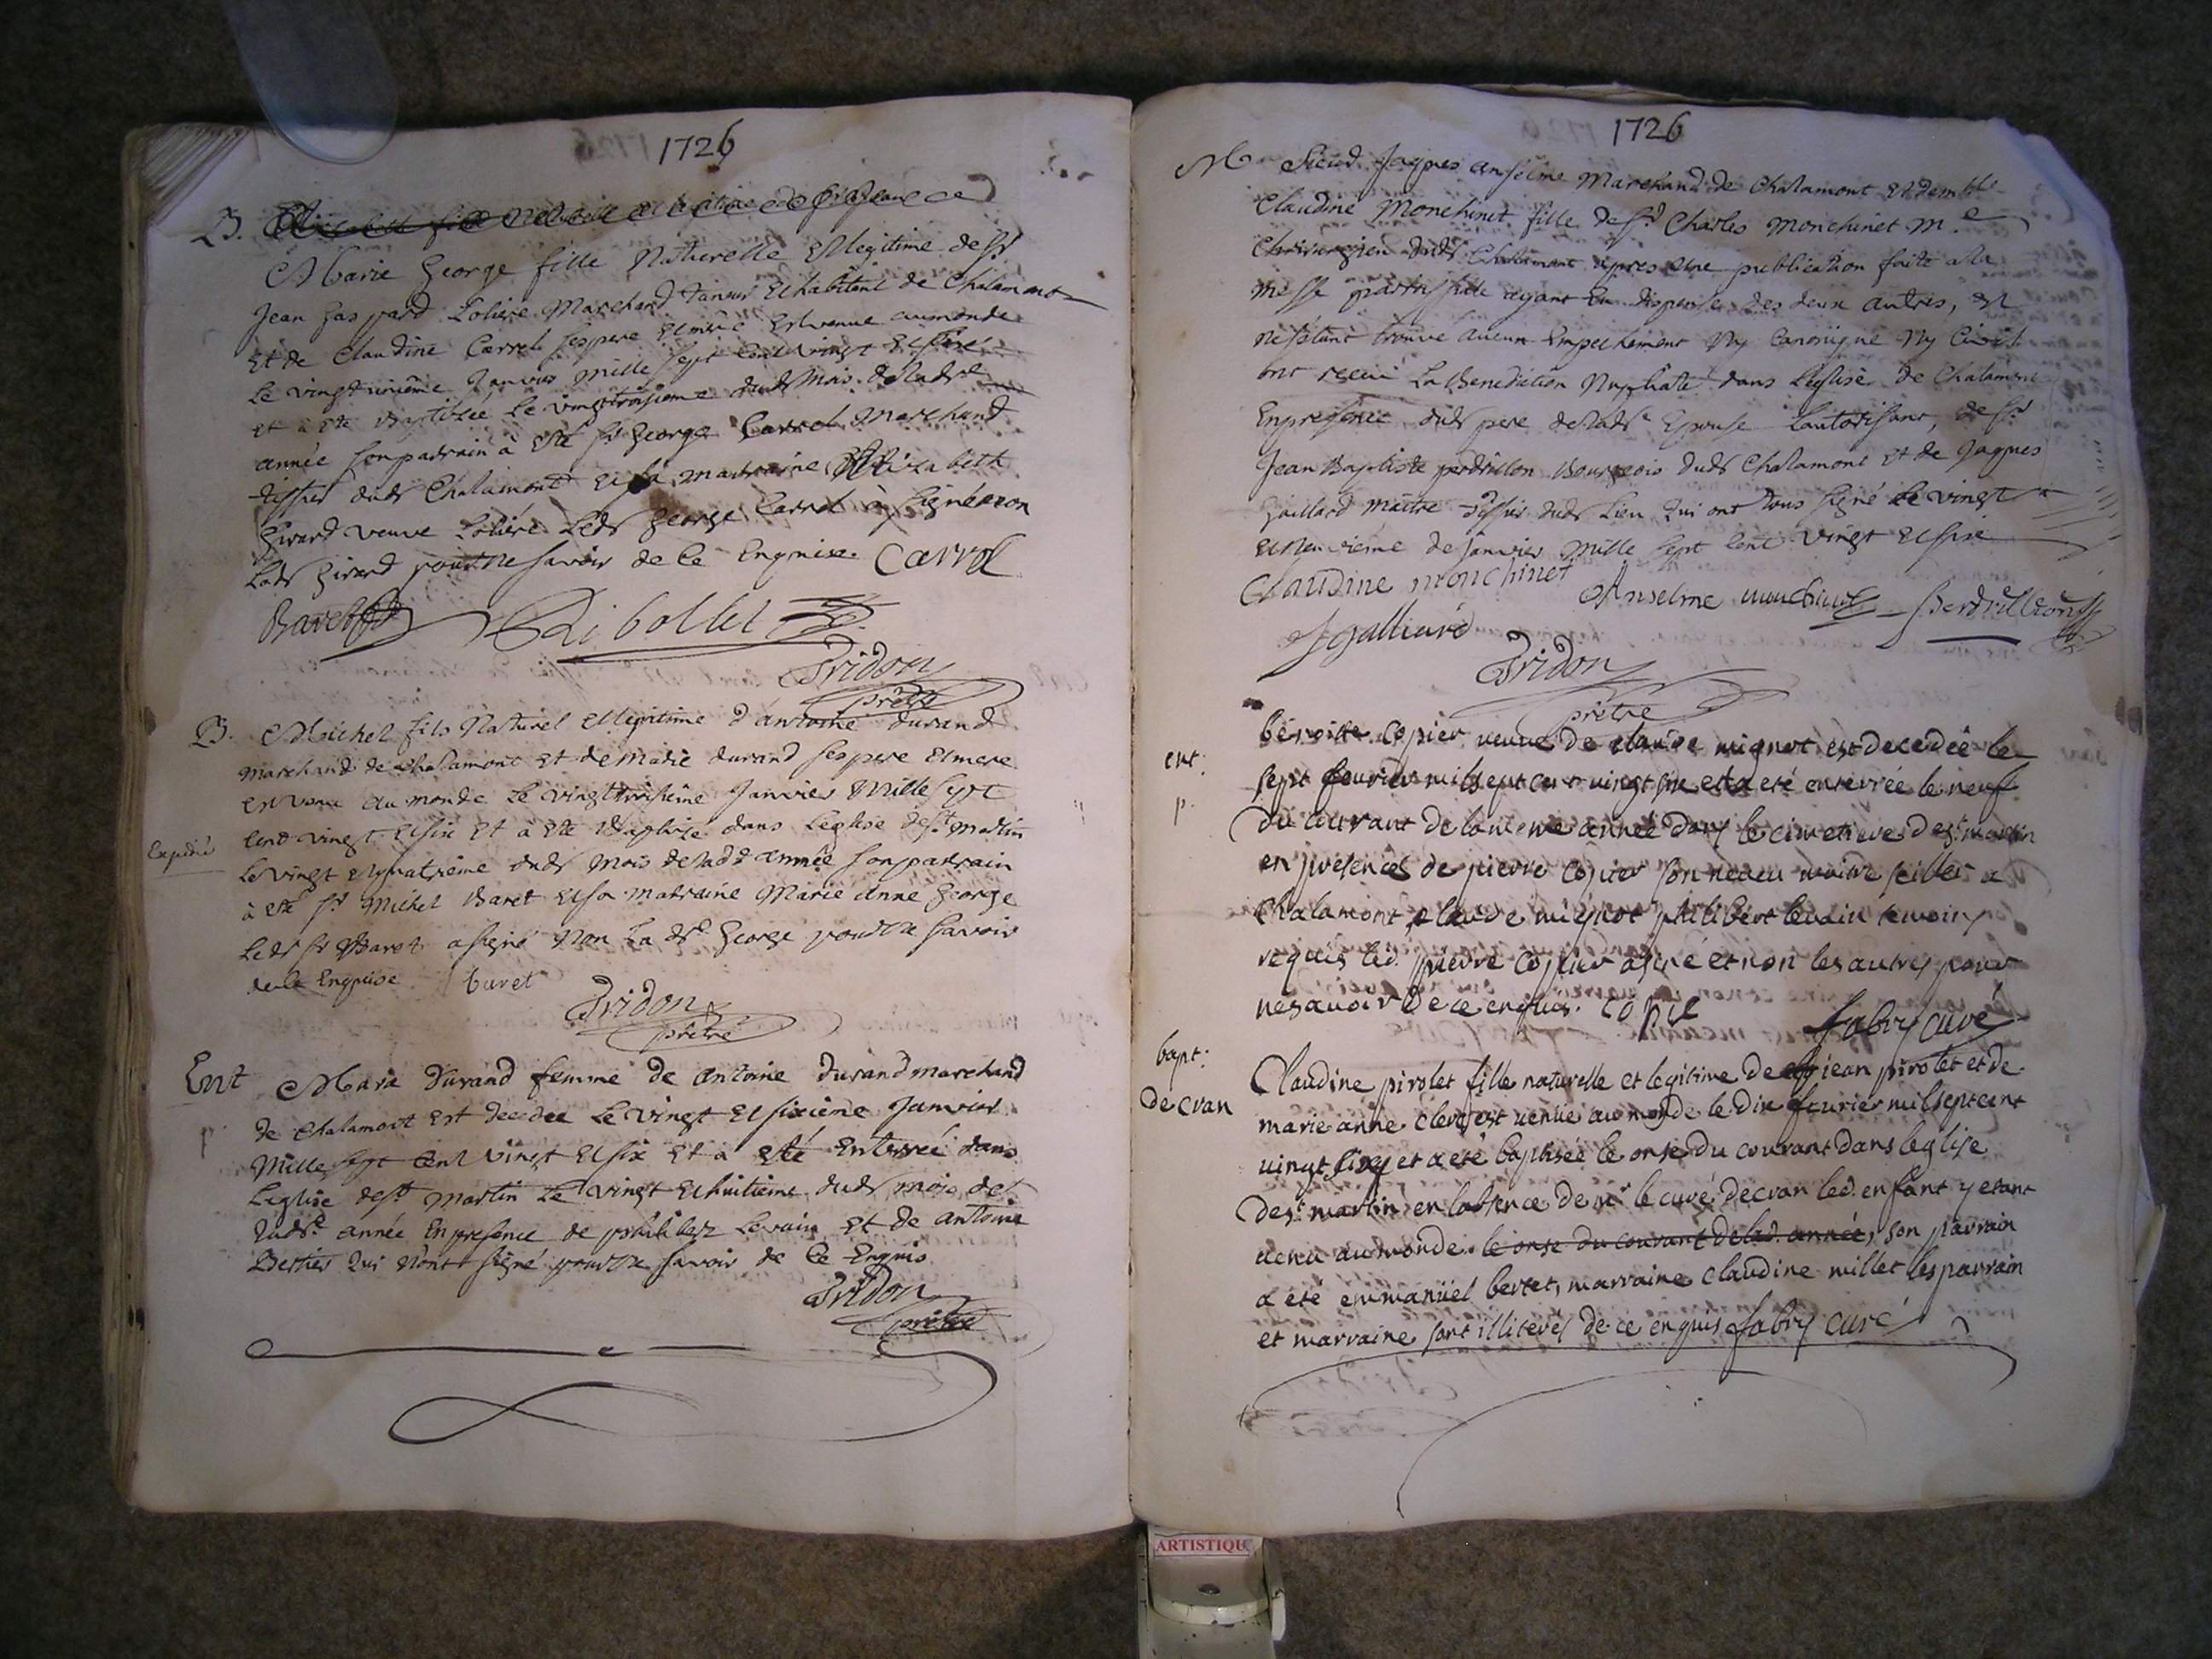 1726
B.
Marie George fille Naturelle et legitime de sr
Jean Gaspard Loliere Marchand Taneur et habitent de Chalamont
et de Claudine Carrel ses pere et mere est venue au monde
le vingt unième Janvier Mille sept cent vingt et six
et à été baptisée le vingt troisieme dudt mois de ladte
année son parrain à été sr George Carrel Marchand
tissier dudt Chalamont et sa marraine Elizabeth
Girard veuve Loliere Ledt George Carrel à signé et non
Ladt Girard pour ne savoir de ce Enquise. Carrel
Baret Ribollet
Tridon
prêtre
B. Michel fils Naturel et legitime d'antoine durand
marchand de Chalamont et de Marie durand ses pere et mere
est venu au monde le vingt troisième Janvier Mille sept
Expédié
cent vingt et six et à été Baptisé dans l'eglise de st Martin
le vingt et quatrième dudt mois de ladte année son parrain
à été sr Michel Baret et sa marraine Marie Anne George
Ledt sr Baret a signé Non La dte George pour ne savoir
de ce Enquise baret
Tridon
prêtre
Ent Marie Durand femme de antoine durand marchand
de Chalamont est decedée le vingt et sixième Janvier
p.
Mille sept cent vingt et six et à été Enterrée dans
l'eglise de st Martin le vingt et huitième dudt mois de
ladte année En presence de philibert Levain et de antoine
Bertier qui n'ont signé pour ne savoir de ce Enquis
Tridon
prêtre
1726
M Sieud. Jaques anselme Marchand de Chalamont et demlle
Claudine Monchinet fille de sr Charles Monchinet me
Chirurgien dudt Chalamont apres Une publication faite a la
messe paroissialle ayant Eu dispense des deux autres, et
ne s'étant trouvé aucun Empechement Ny Canonique Ny Civil
ont receu La Benediction Nuptiale dans l'église de Chalamont
En presence dudt pere de ladte Epouse l'autorisant, de sr
Jean Baptiste perdrillon Bourgeois dudt Chalamont et de Jaques
Gaillard maître tissier dudt Lieu qui ont tous signé le vingt
et neuvieme de Janvier Mille sept cent vingt et six
Claudine monchinet Anselme monchinet Perdrillon
J galliard
Tridon
prêtre
ent. benoite Copier veuve de claude mignot est decedée le
sept feurier mil sept cent vingt six et a eté enterrée le neuf
p.
du courant de la meme année dans le cimetiere de st martin
en presences de pierre Copier son neueu
Chalamont, claude mignot philibert leuain temoins
requis led. pierre Copier a signé et non les autres pour
ne sauoir de ce enquis. Copié
fabry curé
bapt. Claudine pirolet fille naturelle et legitime de jean pirolet et de
de cran marie anne clerc est uenüe au monde le dix feurier mil sept cent
uingt six et a eté baptisée le onse du courant dans leglise
de st martin en labsence de mr le curé de cran led. enfant y etant
uenu au monde. le onse du courant de lad. année, son parrain
a eté emmanüel bertet, marraine claudine millet les parrain
et marraine sont illiterés de ce enquis fabry curé
ARTISTIQU